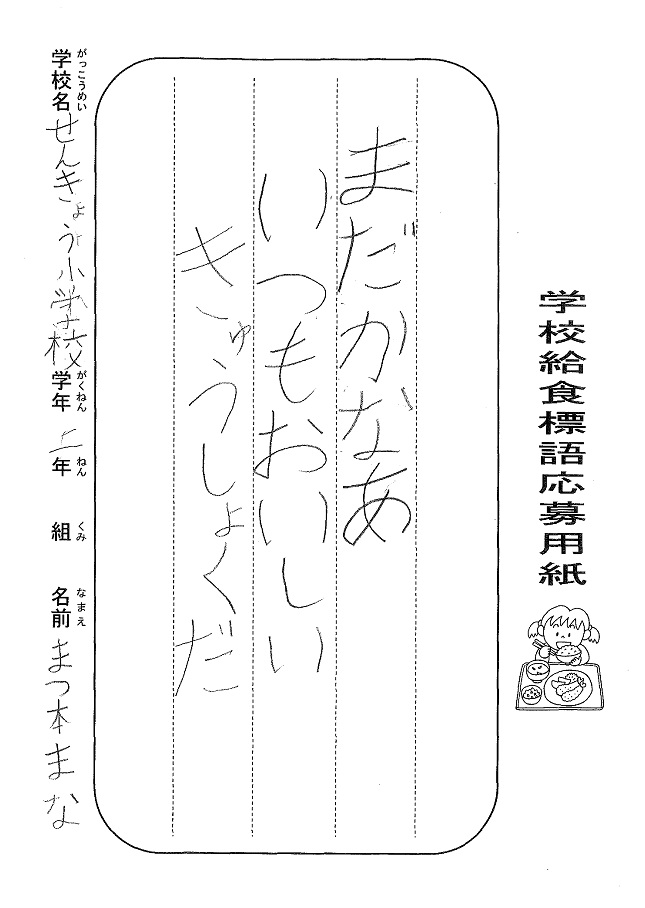 学校給食標語応募用紙
まだかなあ
いつもおいしい
きゅうしょくだ
学校名 せんきょう小学校 学年 二年 組 名前 まつ本まな
がっこうめい がくねん ねん くみ なまえ